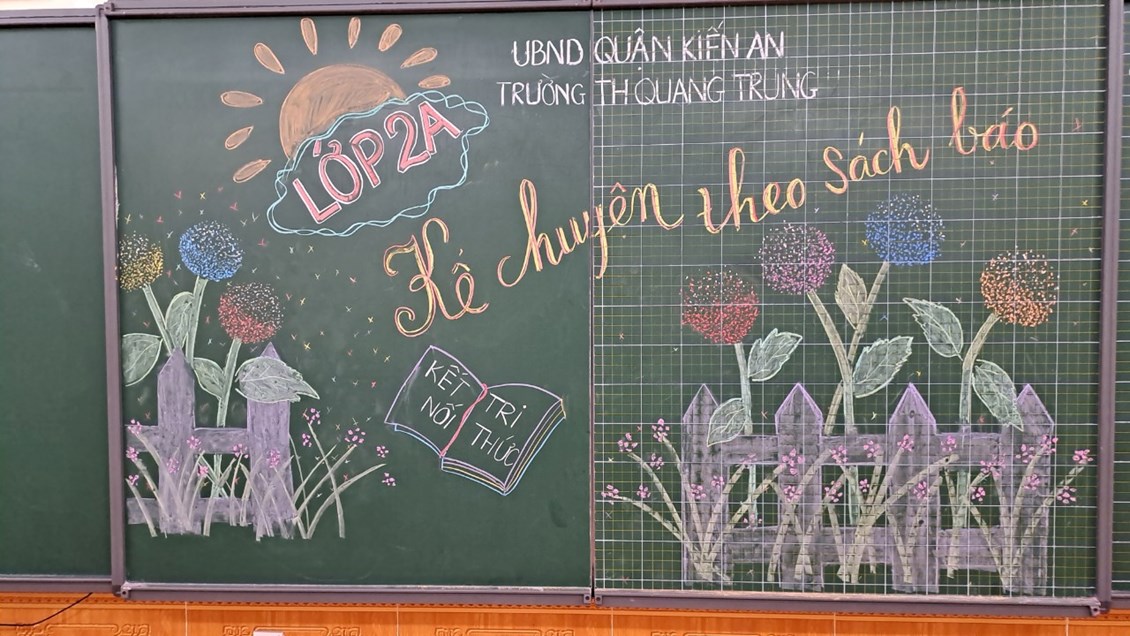 UBND QUẬN KIẾN AN
TRƯỜNG TH QUANG TRUNG
LỚP 2A
Kể chuyện theo sách báo
KẾT NỐI
TRI THỨC